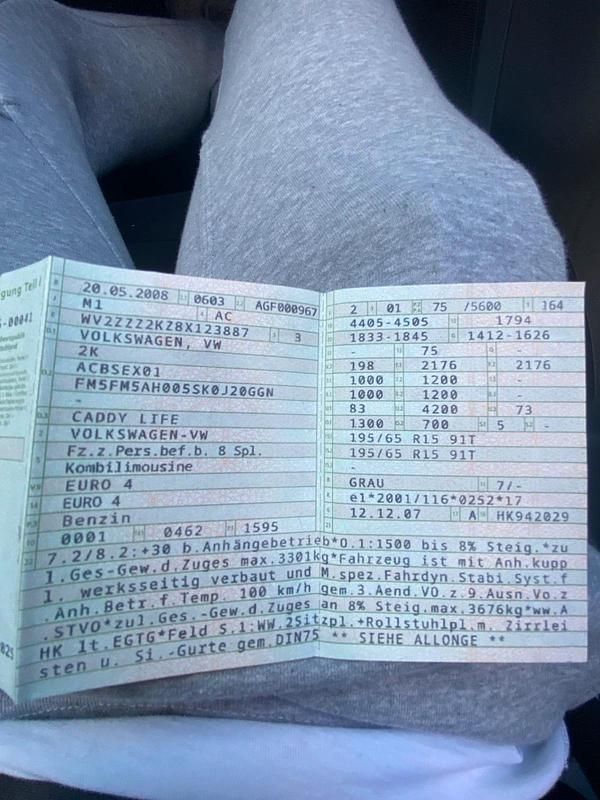 gung Teil I
-00041
20.05.2008 0603 AGF000967
M1 AC
WV2ZZZ2KZ8X123887 3
VOLKSWAGEN, VW
2K
ACBSEX01
FM5FM5AH005SK0J20GGN
-
CADDY LIFE
VOLKSWAGEN-VW
Fz.z.Pers.bef.b. 8 Spl.
Kombilimousine
EURO 4
EURO 4
Benzin
0001 0462 1595
2 01 75 /5600 164
4405-4505 1794
1833-1845 1412-1626
- 75 -
198 2176 2176
1000 1200 -
1000 1200 -
83 4200 73
1300 700 5 -
195/65 R15 91T
195/65 R15 91T
-
GRAU 7/-
e1*2001/116*0252*17
12.12.07 A HK942029
7.2/8.2:+30 b.Anhängebetrieb*O.1:1500 bis 8% Steig.*zu
l.Ges-Gew.d.Zuges max.3301kg*Fahrzeug ist mit Anh.kupp
l. werksseitig verbaut und M.spez.Fahrdyn.Stabi.Syst.f
.Anh.Betr.f.Temp. 100 km/h gem.3.Aend.VO.z.9.Ausn.Vo.z
.STVO*zul.Ges.-Gew.d.Zuges an 8% Steig.max.3676kg*ww.A
HK lt.EGTG*Feld S.1:WW.2Sitzpl.+Rollstuhlpl.m. Zirrlei
sten u. Si.-Gurte gem.DIN75 ** SIEHE ALLONGE **